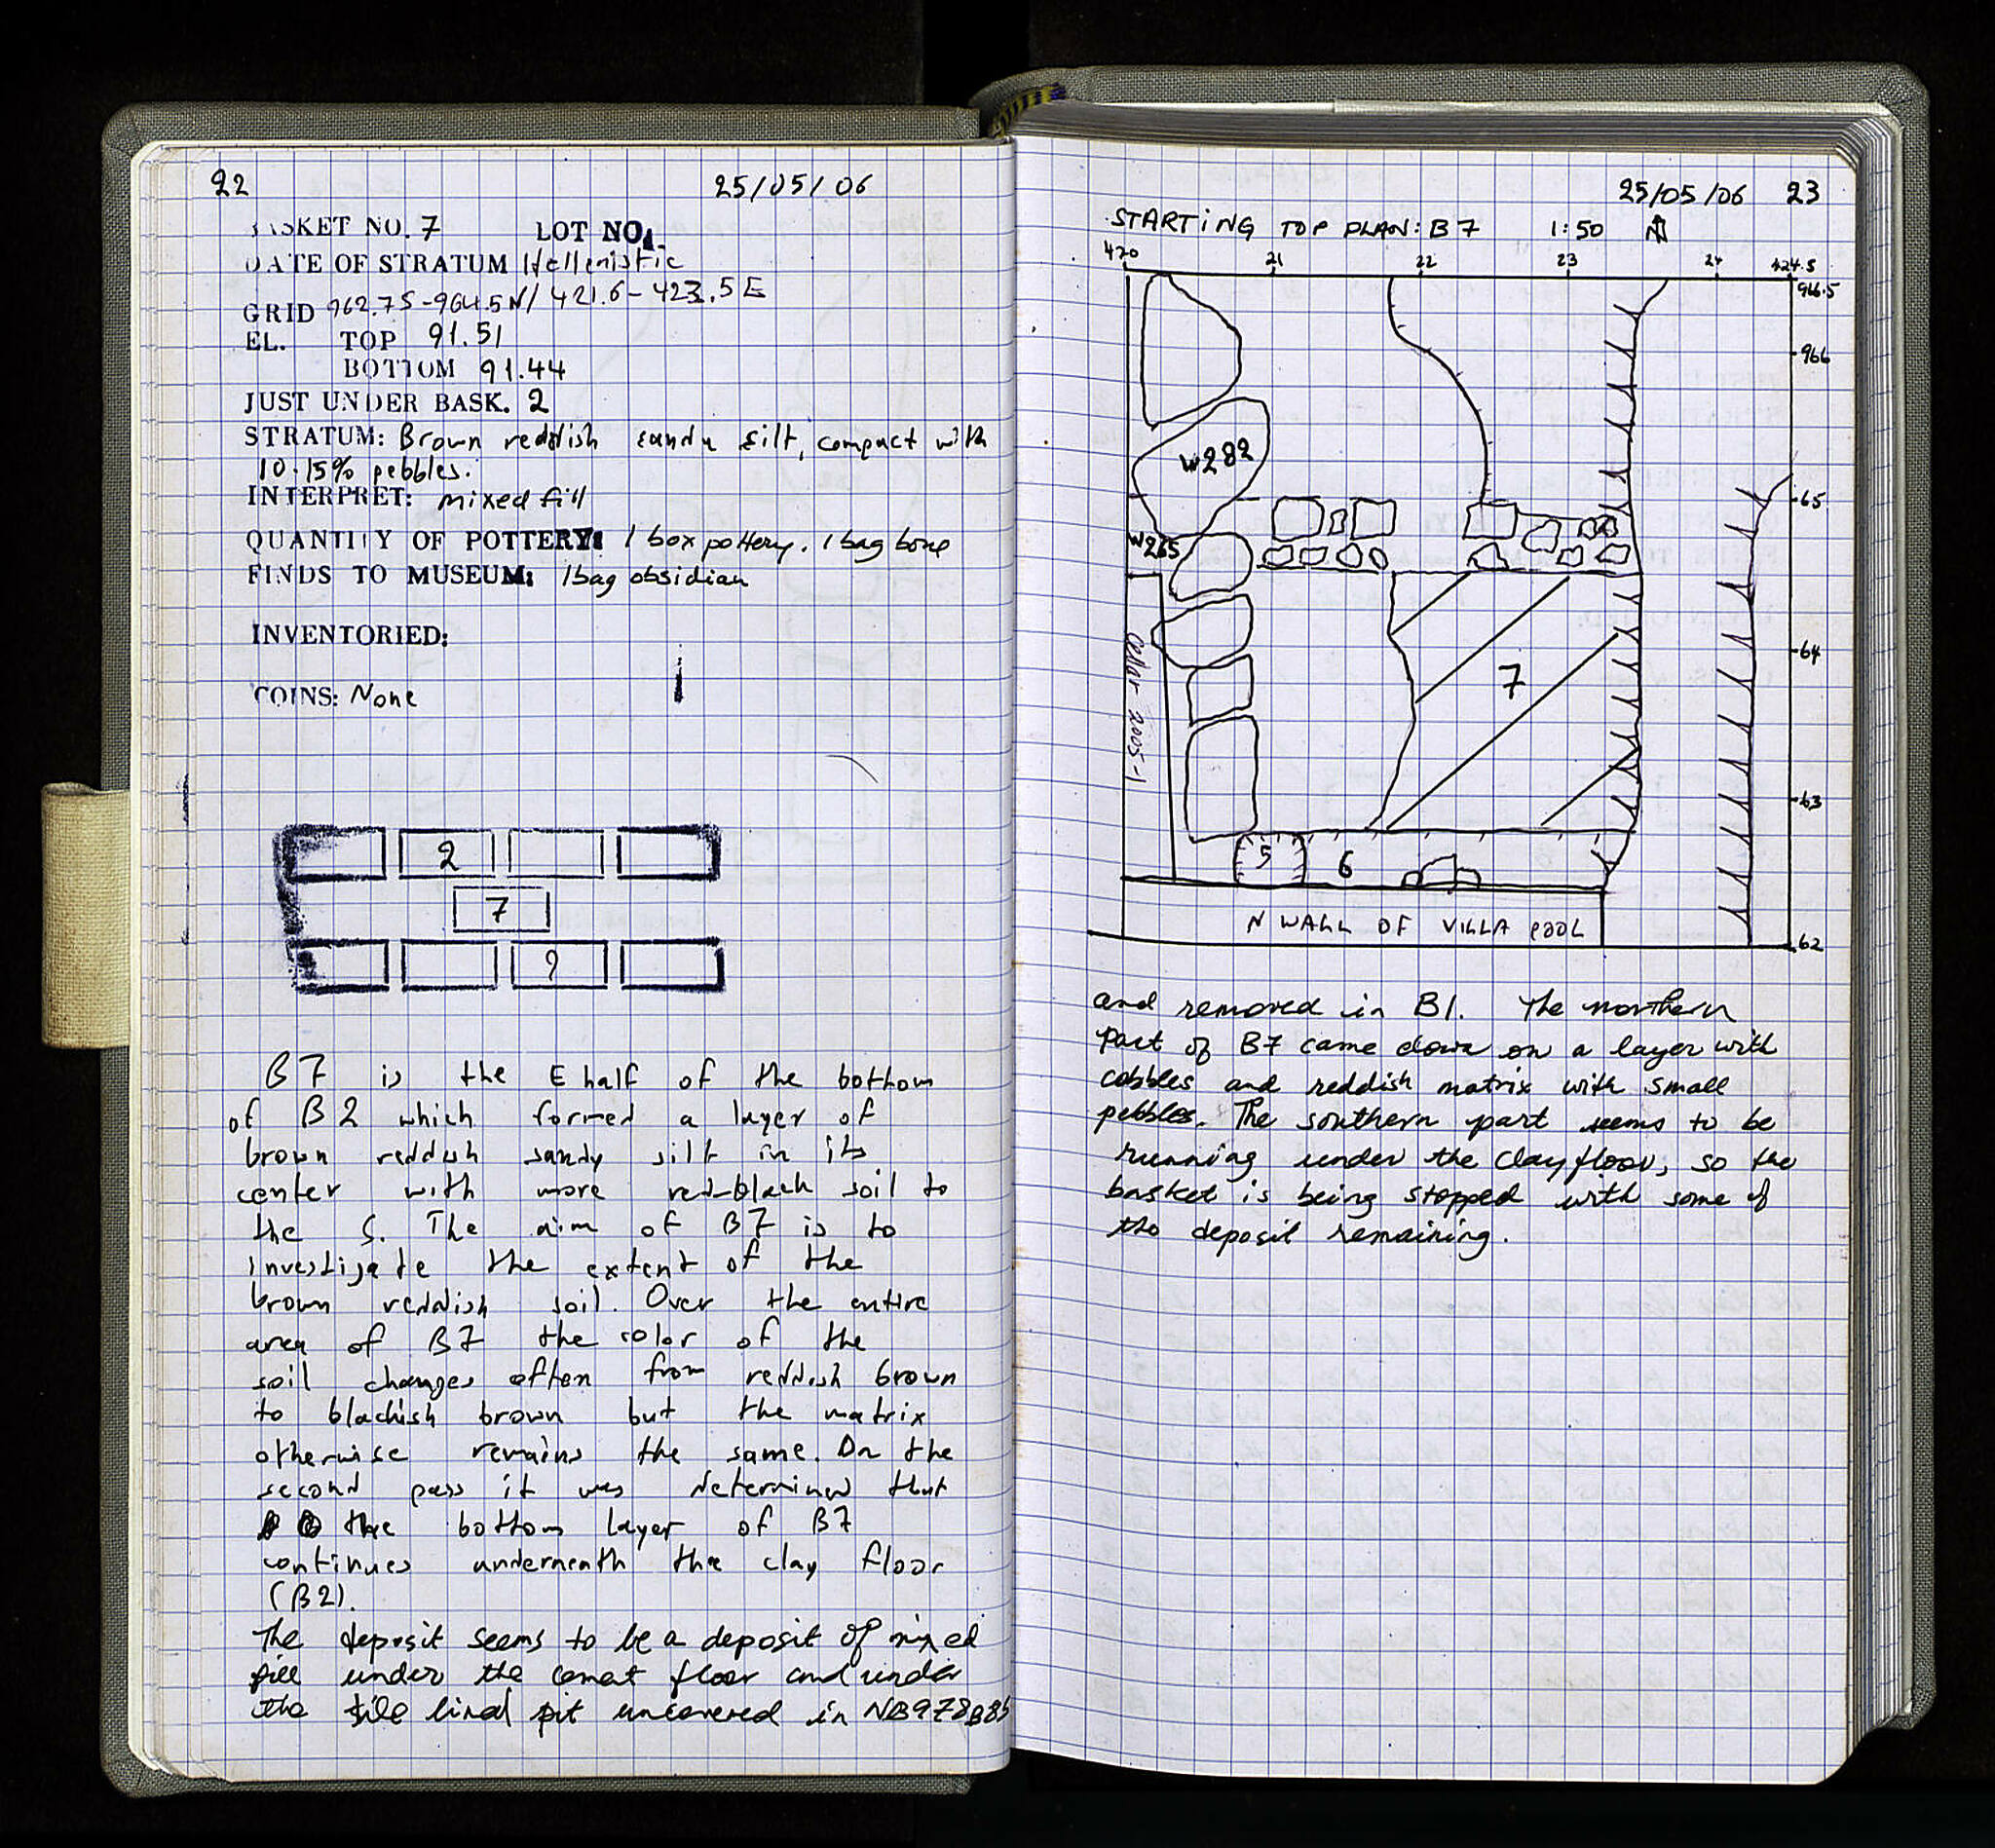 22
25/05/06
BASKET NO. 7 LOT NO.
DATE OF STRATUM Hellenistic
GRID 962.75-964.5N/ 421.6-423.5E
EL. TOP 91.51
BOTTOM 91.44
JUST UNDER BASK. 2
STRATUM: Brown reddish sandy silt, compact with
10-15% pebbles.
INTERPRET: mixed fill
QUANTITY OF POTTERY: 1 box pottery. 1 bag bone
FINDS TO MUSEUM: 1 bag obsidian
INVENTORIED:
COINS: None
2
7
9
B7 is the E half of the bottom
of B2 which formed a layer of
brown reddish sandy silt in its
center with more red-black soil to
the S. The aim of B7 is to
investigate the extent of the
brown reddish soil. Over the entire
area of B7 the color of the
soil changes often from reddish brown
to blackish brown but the matrix
otherwise remains the same. On the
second pass it was determined that
the bottom layer of B7
continues underneath the clay floor
(B2).
The deposit seems to be a deposit of mixed
fill under the floor and under
the tile lined pit uncovered in NB978B85
25/05/06 23
STARTING TOP PLAN: B7 1:50 N
420 21 22 23 24 424.5
966.5
966
W282
65
W265
64
Cellar 2005-1
7
63
5 6
N WALL OF VILLA POOL
62
and removed in B1. The northern
part of B7 came down on a layer with
cobbles and reddish matrix with small
pebbles. The southern part seems to be
running under the clay floor, so the
basket is being stopped with some of
the deposit remaining.